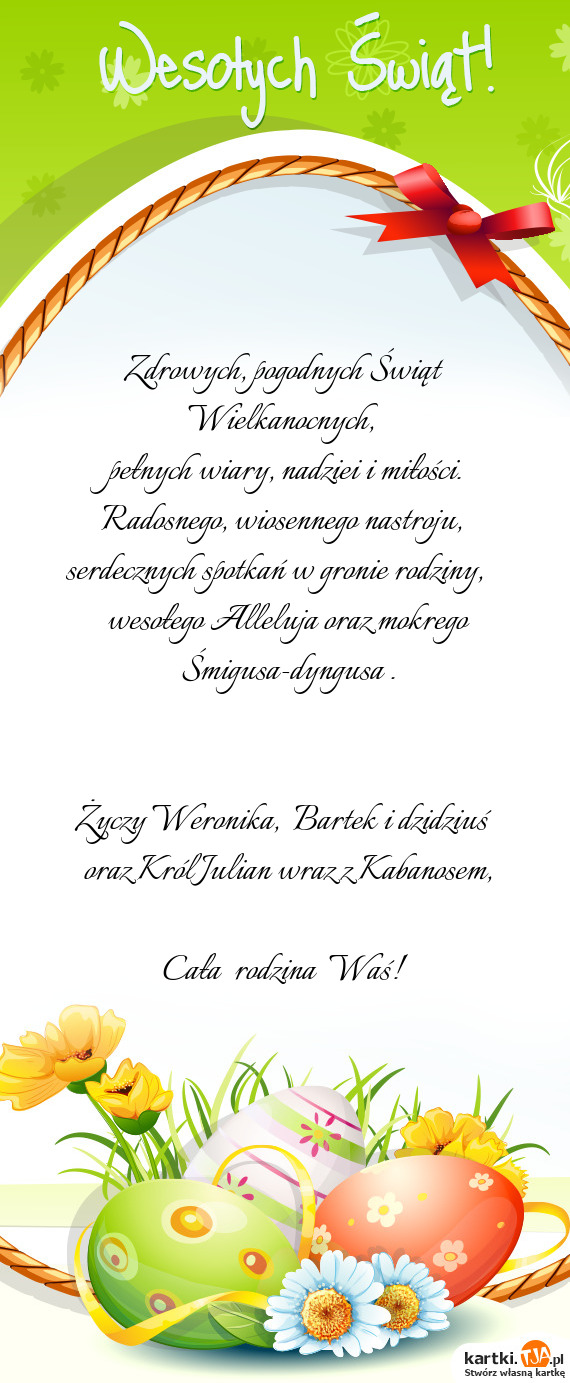 Wesołych Świąt!
Zdrowych, pogodnych Świąt
Wielkanocnych,
pełnych wiary, nadziei i miłości.
Radosnego, wiosennego nastroju,
serdecznych spotkań w gronie rodziny,
wesołego Alleluja oraz mokrego
Śmigusa-dyngusa .
Życzy Weronika, Bartek i dzidziuś
oraz Król Julian wraz z Kabanosem,
Cała rodzina Waś!
kartki.TJA.pl
Stwórz własną kartkę